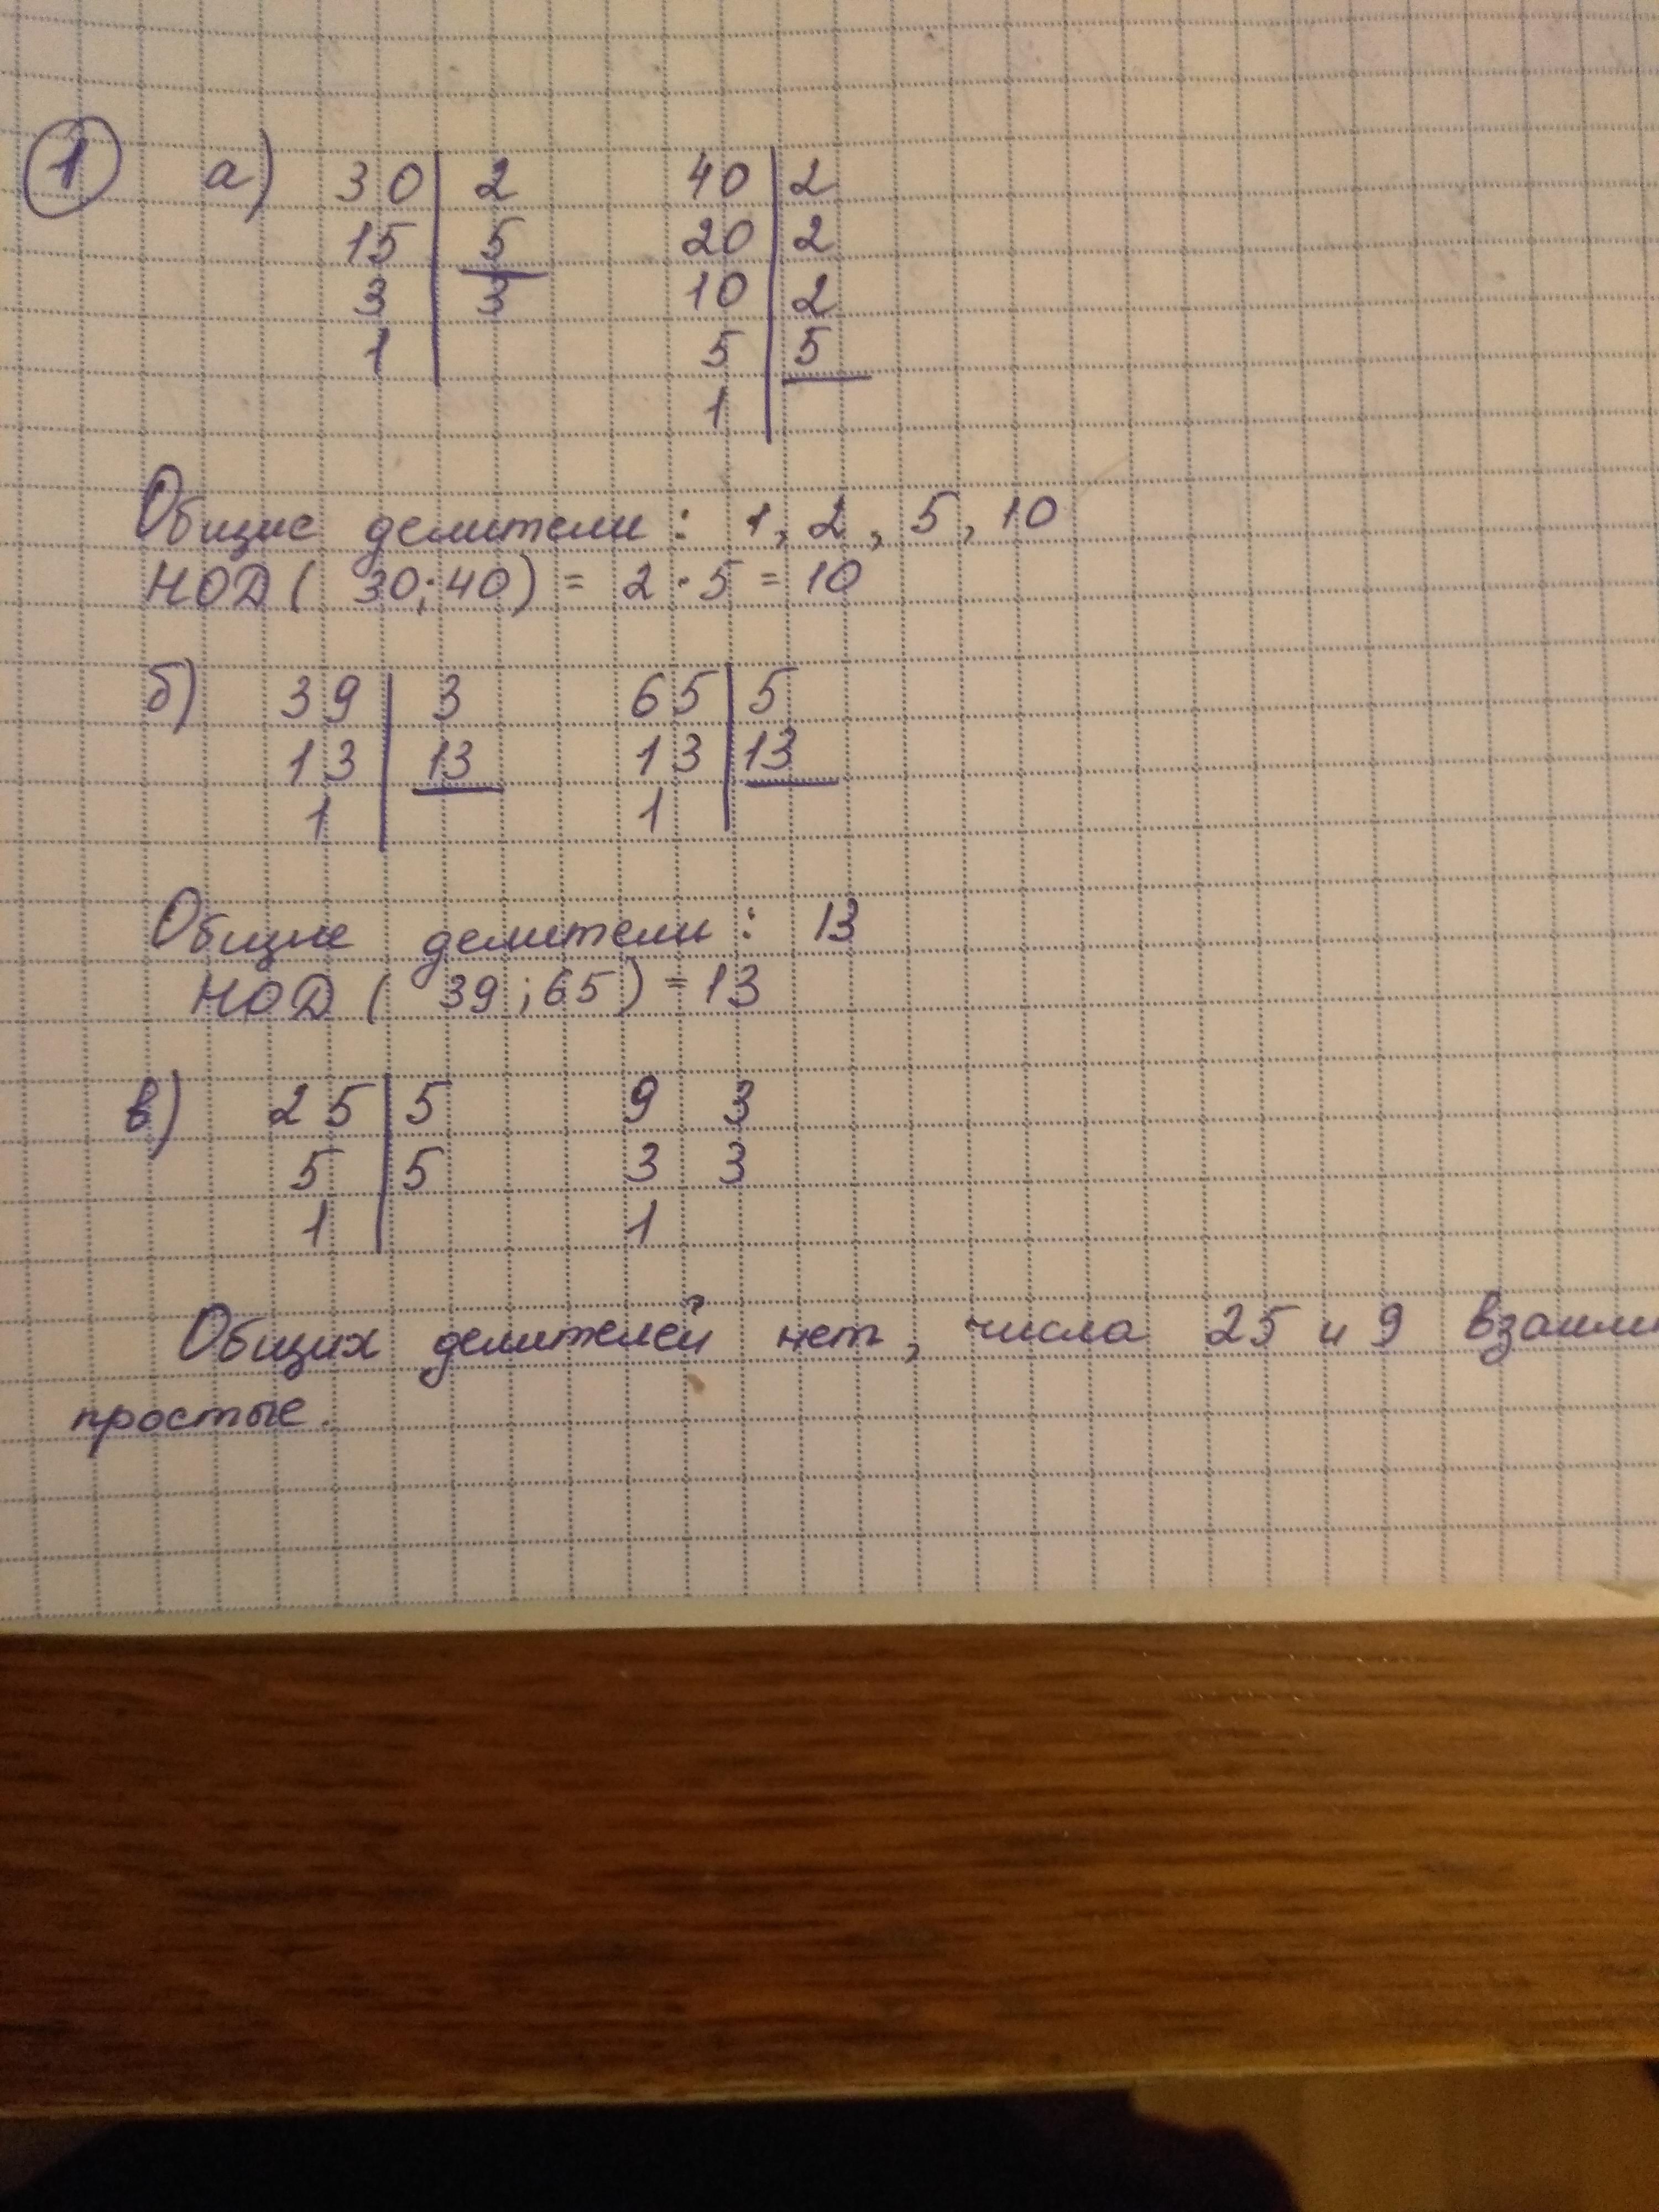 1 а) 30 2 40 2
15 5 20 2
3 3 10 2
1 5 5
1
Общие делители: 1, 2, 5, 10
НОД ( 30; 40) = 2 · 5 = 10
б) 39 3 65 5
13 13 13 13
1 1
Общие делители: 13
НОД ( 39; 65) = 13
в) 25 5 9 3
5 5 3 3
1 1
Общих делителей нет, числа 25 и 9 взаим
простые.